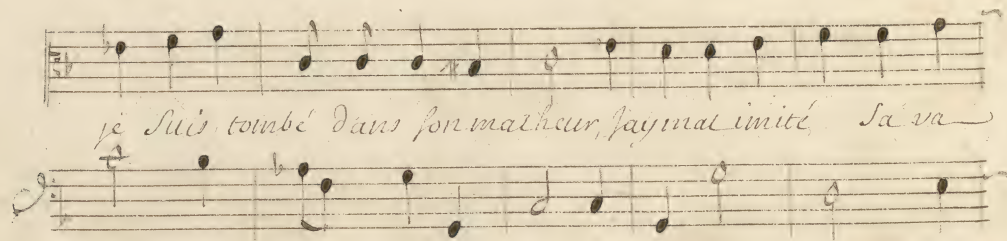 je Suis tombé dans son malheur, j'ay mal imité Sa va